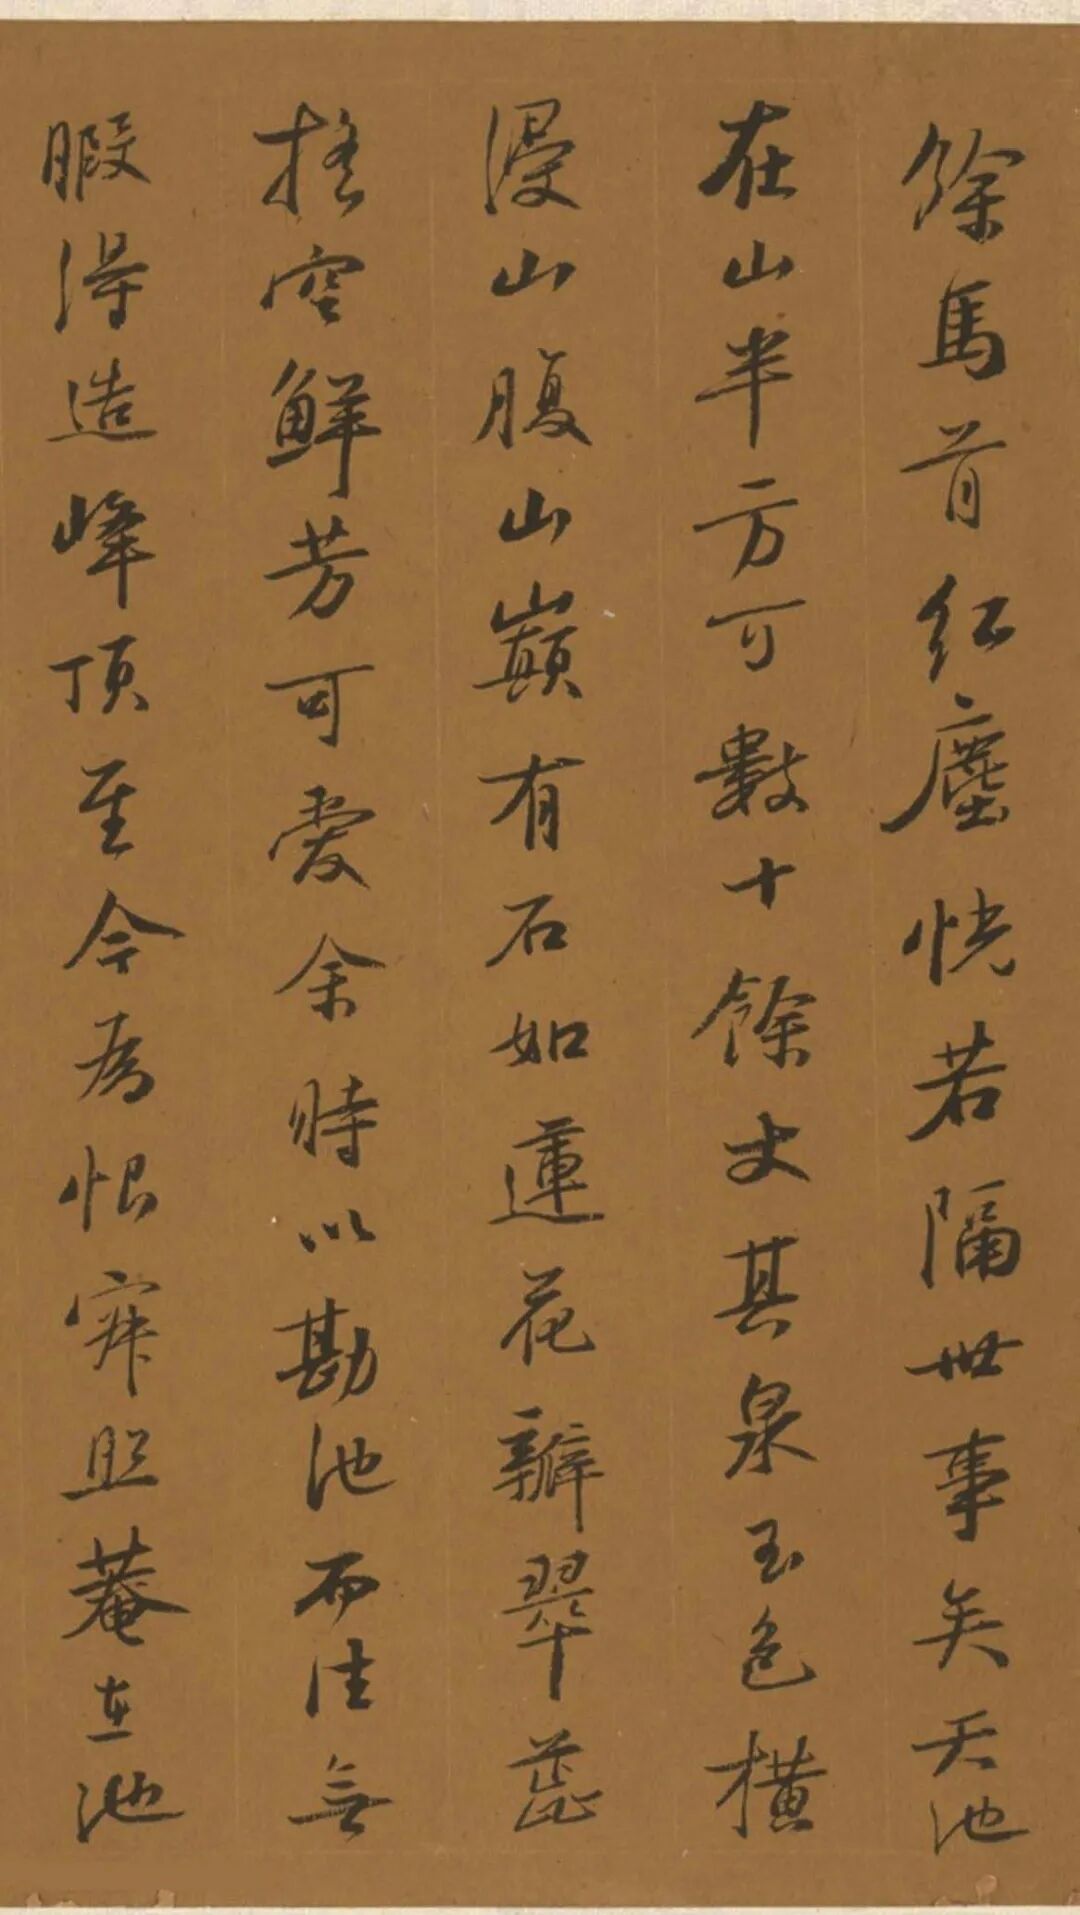 餘馬首紅塵恍若隔世事矣天池
在山半方可數十餘丈其泉玉色橫
浸山腹山巔有石如蓮花瓣翠蕋
搖空鮮芳可愛余時以勘池而往無
暇得造峰頂至今為恨寂照菴在池